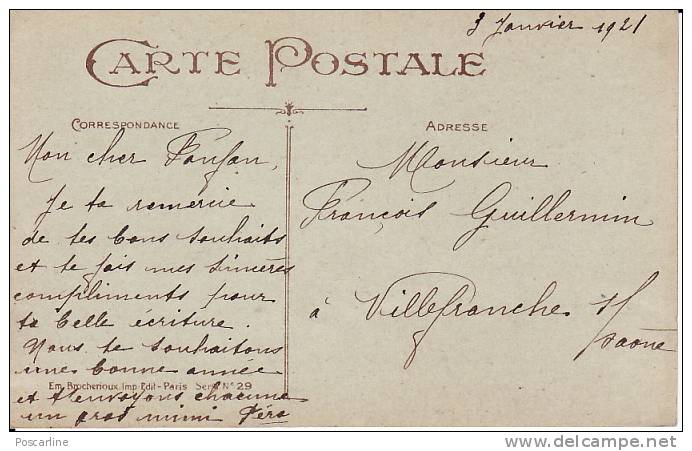 3 Janvier 1921
CARTE POSTALE
CORRESPONDANCE
Mon cher Fanfan,
Je te remercie
de tes bons souhaits
et te fais mes sincères
compliments pour
ta belle écriture.
Nous te souhaitons
une bonne année
Em. Brocherioux, Imp. Edit - Paris Série N° 29
et t'envoyons chacune
un gros mimi
ADRESSE
Monsieur
François Guillermin
à Villefranche s/
saône
Poscarline
delcampe.net